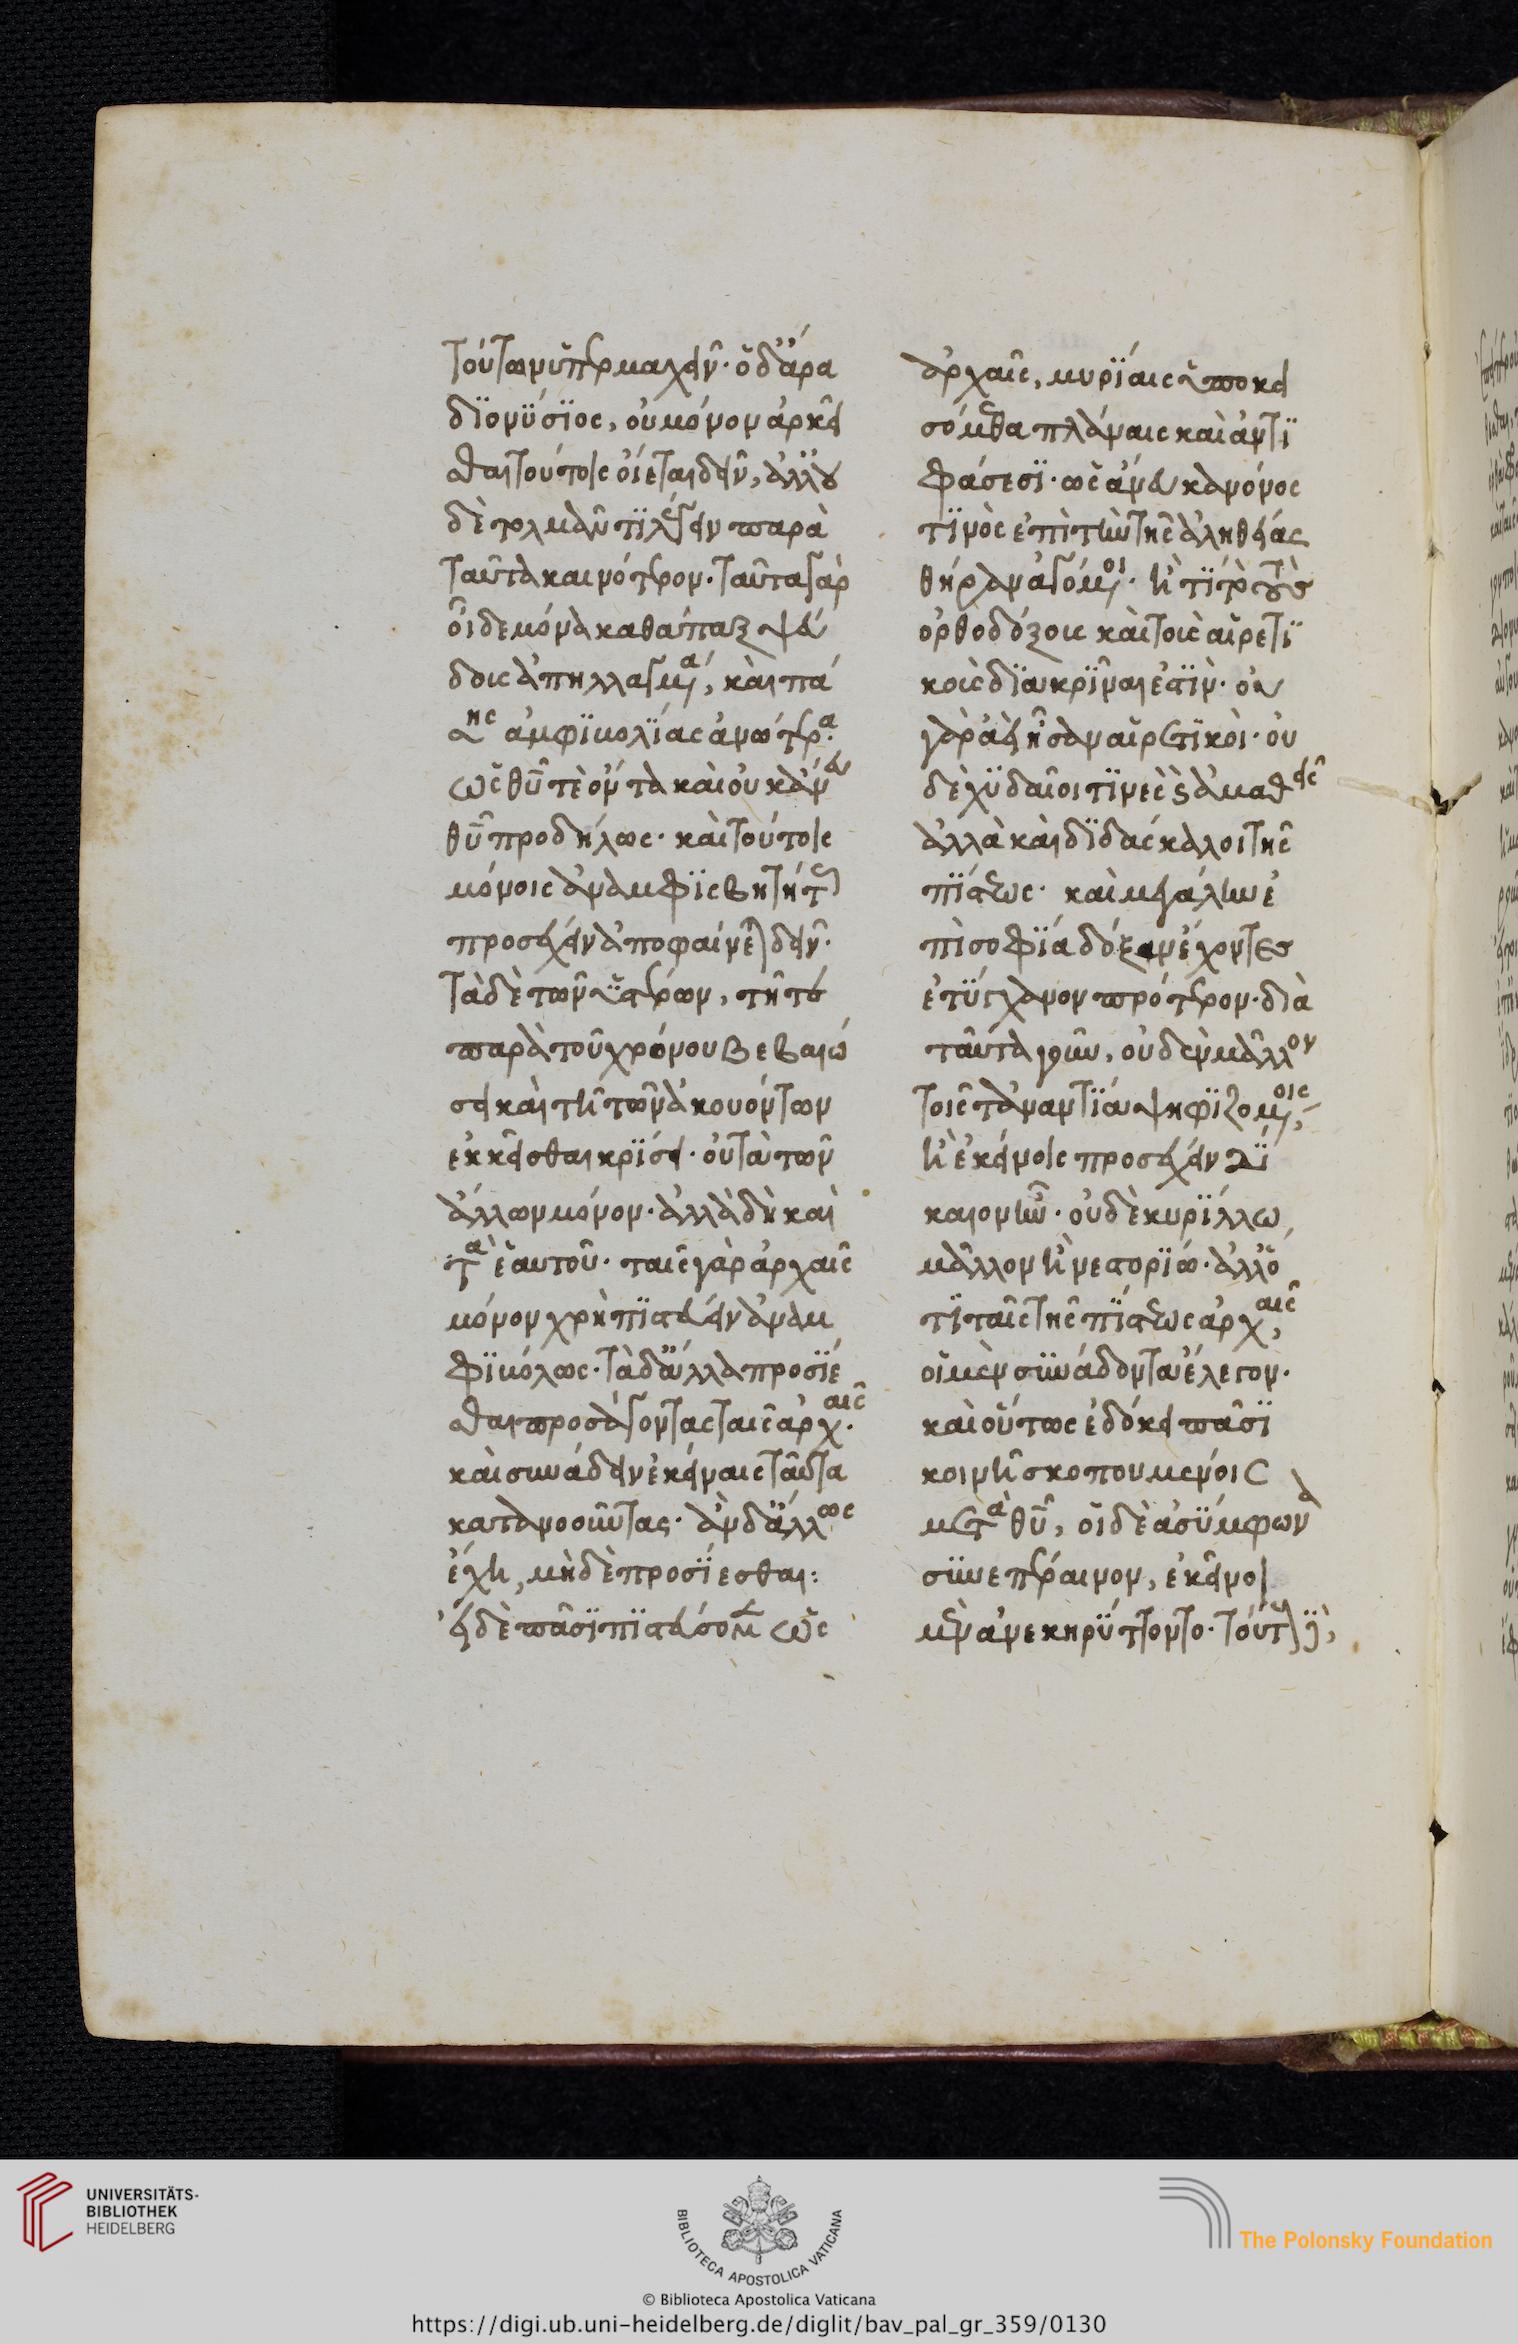 τούτων ὑπερμαχεῖν· ὁ δ' ἄρα
διονύσιος, οὐ μόνον ἀρκεῖ
σθαι τούτοις οἴεται δεῖν, ἄλλου
δὲ τολμᾶν τι λέγειν παρὰ
ταῦτα καινότερον· ταῦτα γὰρ
οἶδε μόνα καθάπαξ ψεύ
δους ἀπηλλαγμένα, καὶ πά
σης ἀμφιβολίας ἀνώτερα·
ὡς θεοῦ τε ὄντα καὶ οὐκ ἄνευ
θεοῦ προδήλως· καὶ τούτοις
μόνοις ἀναμφισβητήτως
προσέχειν ἀποφαίνεται δεῖν·
τὰ δὲ τῶν ὑστέρων, τῇ τε
παρὰ τοῦ χρόνου βεβαιώ
σει καὶ τῇ τῶν ἀκουόντων
ἐκκεῖσθαι κρίσει· οὐ τὰ τῶν
ἄλλων μόνον· ἀλλὰ δὴ καὶ
τὰ ἑαυτοῦ· ταῖς γὰρ ἀρχαῖς
μόνον χρὴ πιστεύειν ἀναμ
φιβόλως· τὰ δ' ἄλλα προσίε
σθαι προσάγοντας ταῖς ἀρχαῖς·
καὶ συνάδειν ἐκείναις ταῦτα
κατανοοῦντας· ἂν δ' ἄλλως
ἔχῃ, μὴ δὲ προσίεσθαι:
εἰ δὲ πᾶσι πιστεύσομεν ὡς
ἀρχαῖς, μυρίαις ὑποκει
σόμεθα πλάναις καὶ ἀντι
φάσεσι· ὡς ἄνευ κανόνος
τινὸς ἐπὶ τὴν τῆς ἀληθείας
θήραν ἀγόμενοι· ἢ τί πρὸς τοὺς
ὀρθοδόξους καὶ τοῖς αἱρετι
κοῖς διακρῖναι ἐστίν· οὐ
γὰρ ἀεὶ ἦσαν αἱρετικοὶ· οὐ
δὲ χυδαῖοι τινὲς καὶ ἀμαθεῖς
ἀλλὰ καὶ διδάσκαλοι τῆς
πίστεως· καὶ μεγάλην ἐ
πὶ σοφίᾳ δόξαν ἔχοντες
ἐτύγχανον πρότερον· διὰ
ταῦτα γοῦν, οὐδὲν μᾶλλον
τοῖς τἀναντία ψηφιζομένοις,
ἢ ἐκείνοις προσέχειν δί
καιον ἦν· οὐδὲ κυρίλλῳ
μᾶλλον ἢ νεστορίῳ· ἀλλ' ὅ
τι ταῖς τῆς πίστεως ἀρχαῖς,
οἱ μὲν συνάδοντα ἔλεγον·
καὶ οὕτως ἐδόκει πᾶσι
κοινῇ σκοπουμένοις
μετὰ θεοῦ, οἱ δὲ ἀσύμφωνα
συνεπέραινον, ἐκεῖνοι
μὲν ἀνεκηρύττοντο· τούτοις
UNIVERSITÄTS-
BIBLIOTHEK
HEIDELBERG
BIBLIOTECA APOSTOLICA VATICANA
The Polonsky Foundation
© Biblioteca Apostolica Vaticana
https://digi.ub.uni-heidelberg.de/diglit/bav_pal_gr_359/0130